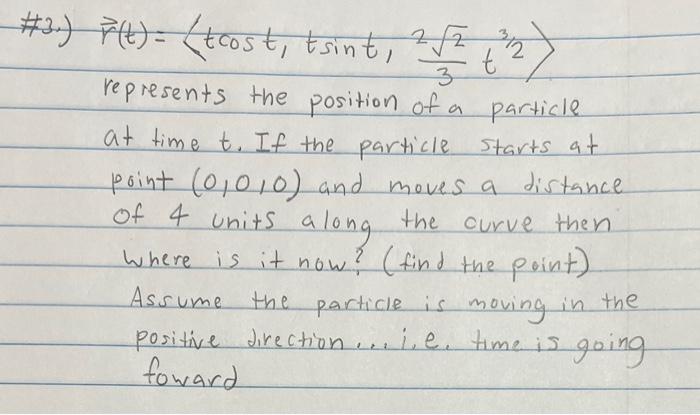 #3.) r⃗(t) = ⟨t cos t, t sin t, 2√2/3 t^3/2⟩
represents the position of a particle
at time t. If the particle starts at
point (0,0,0) and moves a distance
of 4 units along the curve then
where is it now? (find the point)
Assume the particle is moving in the
positive direction... i.e. time is going
foward